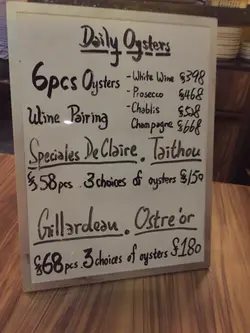 Daily Oysters
6pcs Oysters - White Wine $398
- Prosecco $468
Wine Pairing - Chablis $528
Champagne $668
Speciales De Claire . Taithou
$58pcs . 3 choices of oysters $159
Gillardeau . Ostre'or
$68pcs . 3 choices of oysters $180